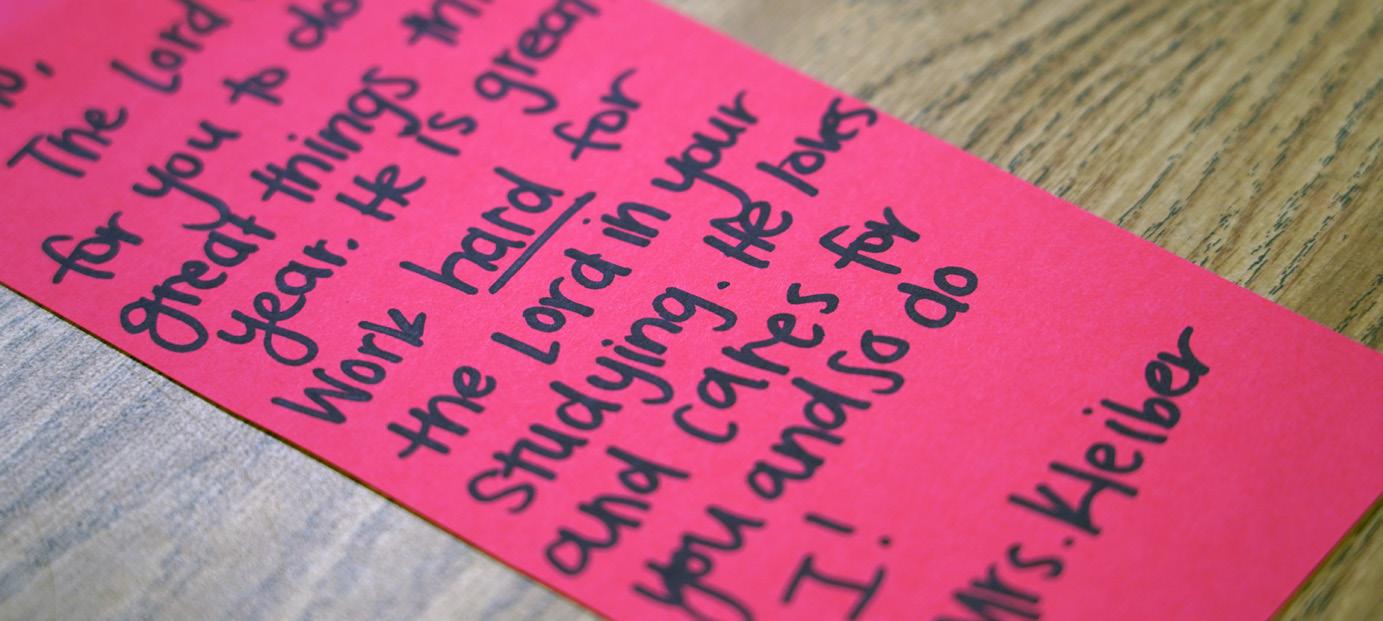 The Lord
for you to do
great things
year. He is great
Work hard for
the Lord in your
studying. He loves
and cares for
you and so do
I!
Mrs. Kleiber